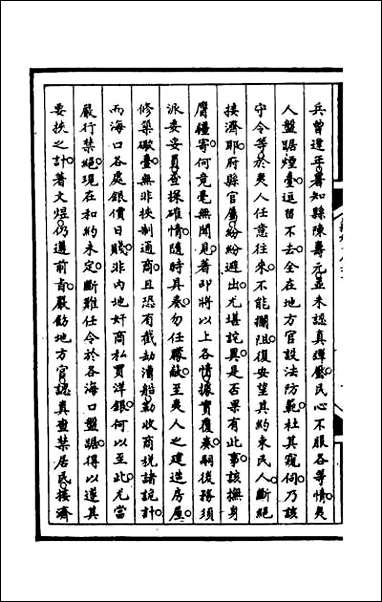 兵曾逢年署知縣陳壽元並未認真彈壓民心不服各等情夷
人盤踞煙臺逗留不去全在地方官設法防範杜其窺伺乃該
守令等於夷人任意往來不能攔阻復安望其約束民人斷絕
接濟耶府縣官屬紛紛避出尤堪詫異是否果有此事該撫身
膺疆寄何竟毫無聞見著即將以上各情據實覆奏嗣後務須
派委妥員查探確情隨時具奏勿任朦蔽至夷人之建造房屋
修築礮臺無非挾制通商且恐有截劫漕船勒收商稅諸詭計
而海口各處銀價日賤非內地奸商私買洋銀何以至此尤當
嚴行禁絕現在和約未定斷難任令於各海口盤踞得以遂其
要挾之計著文煜仍遵前旨嚴飭地方官認真查禁居民接濟